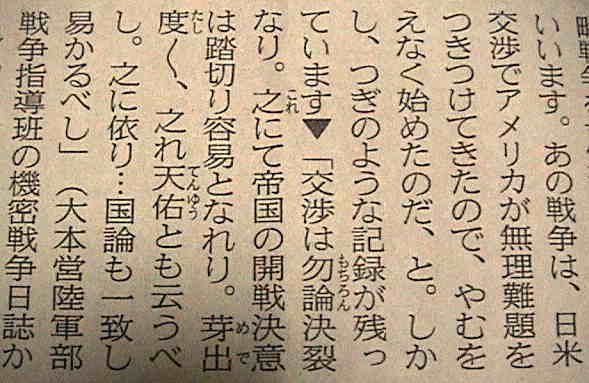 いいます。あの戦争は、日米
交渉でアメリカが無理難題を
つきつけてきたので、やむを
えなく始めたのだ、と。しか
し、つぎのような記録が残っ
ています▼「交渉は勿論決裂
なり。之にて帝国の開戦決意
は踏切り容易となれり。芽出
度く〱、之れ天佑とも云うべ
し。之に依り…国論も一致し
易かるべし」（大本営陸軍部
戦争指導班の機密戦争日誌か